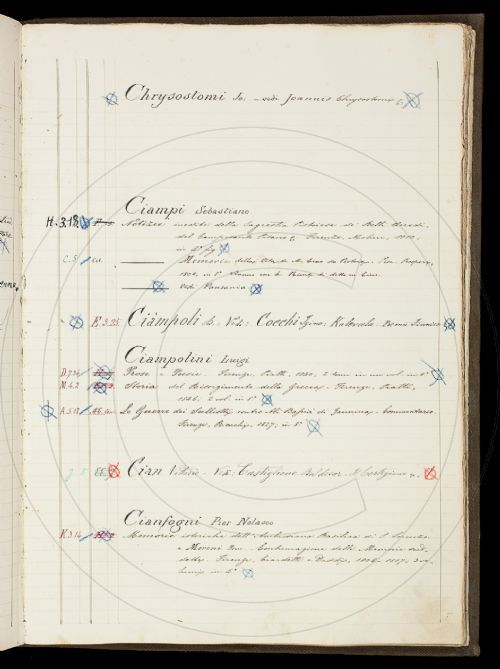 Chrysostomi Jo. - vedi Joannis Chrysostomi
Ciampi Sebastiano
H. 3.18 Notizie inedite della Sagrestia Pistoiese de' Belli Arredi,
del Camposanto Pisano &. Firenze, Molini, 1810,
in 4° fig
C. 5 Memorie della Vita di M. Cino da Pistoia. Pisa, Prosperi,
1808, in 8°
Vedi Pausania
E. 3.35 Ciàmpoli D. Vedi: Cocchi Igino: Kalevala. Poema Finnico
Ciampolini Luigi
D.7.24 Prose e Poesie. Firenze, Piatti, 1830, 2 tomi in un vol. in 8°
M. 4.2 Storia del Risorgimento della Grecia, Firenze, Piatti,
1846. 2 vol. in 8°
A.5.17 Le Guerre dei Sulliotti contro Ali Bascià di Jannina, Commentario
Firenze, 1827, in 8°
5 Cian Vittorio - Ved: Castiglione Baldesar. Il Cortegiano
Cianfogni Pier Nolasco
K. 3.14 Memorie istoriche dell' Ambrosiana Basilica di S. Lorenzo
e Moreni Dom. Continuazione delle Memorie
Firenze, Ciardetti 1804-1817, 3 vol.
in 4°